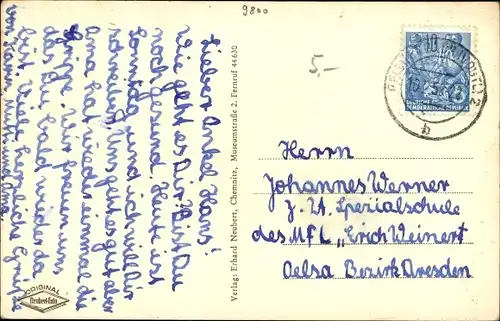 9800
5,-
Lieber Onkel Hans!
Wie geht es Dir? Bist Du
noch gesund. Heute ist
Sonntag und ich will Dir
schreiben. Uns geht es gut aber
Oma hat wieder einmal die
Grippe. Wir freuen uns
das Du bald wieder da
bist. Viele herzliche Grüße
von Mutti und Oma.
Verlag: Erhard Neubert, Chemnitz, Museumstraße 2, Fernruf 44630
ORIGINAL
Neubert-Foto
DEUTSCHE
DEMOKRATISCHE REPUBLIK
10
b
Herrn
Johannes Werner
z. Zt. Spezialschule
des MfL „Erich Weinert
Oelsa Bezirk Dresden